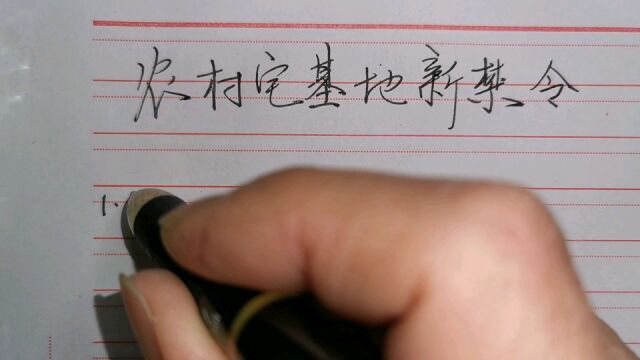 农村宅基地新禁令
1.